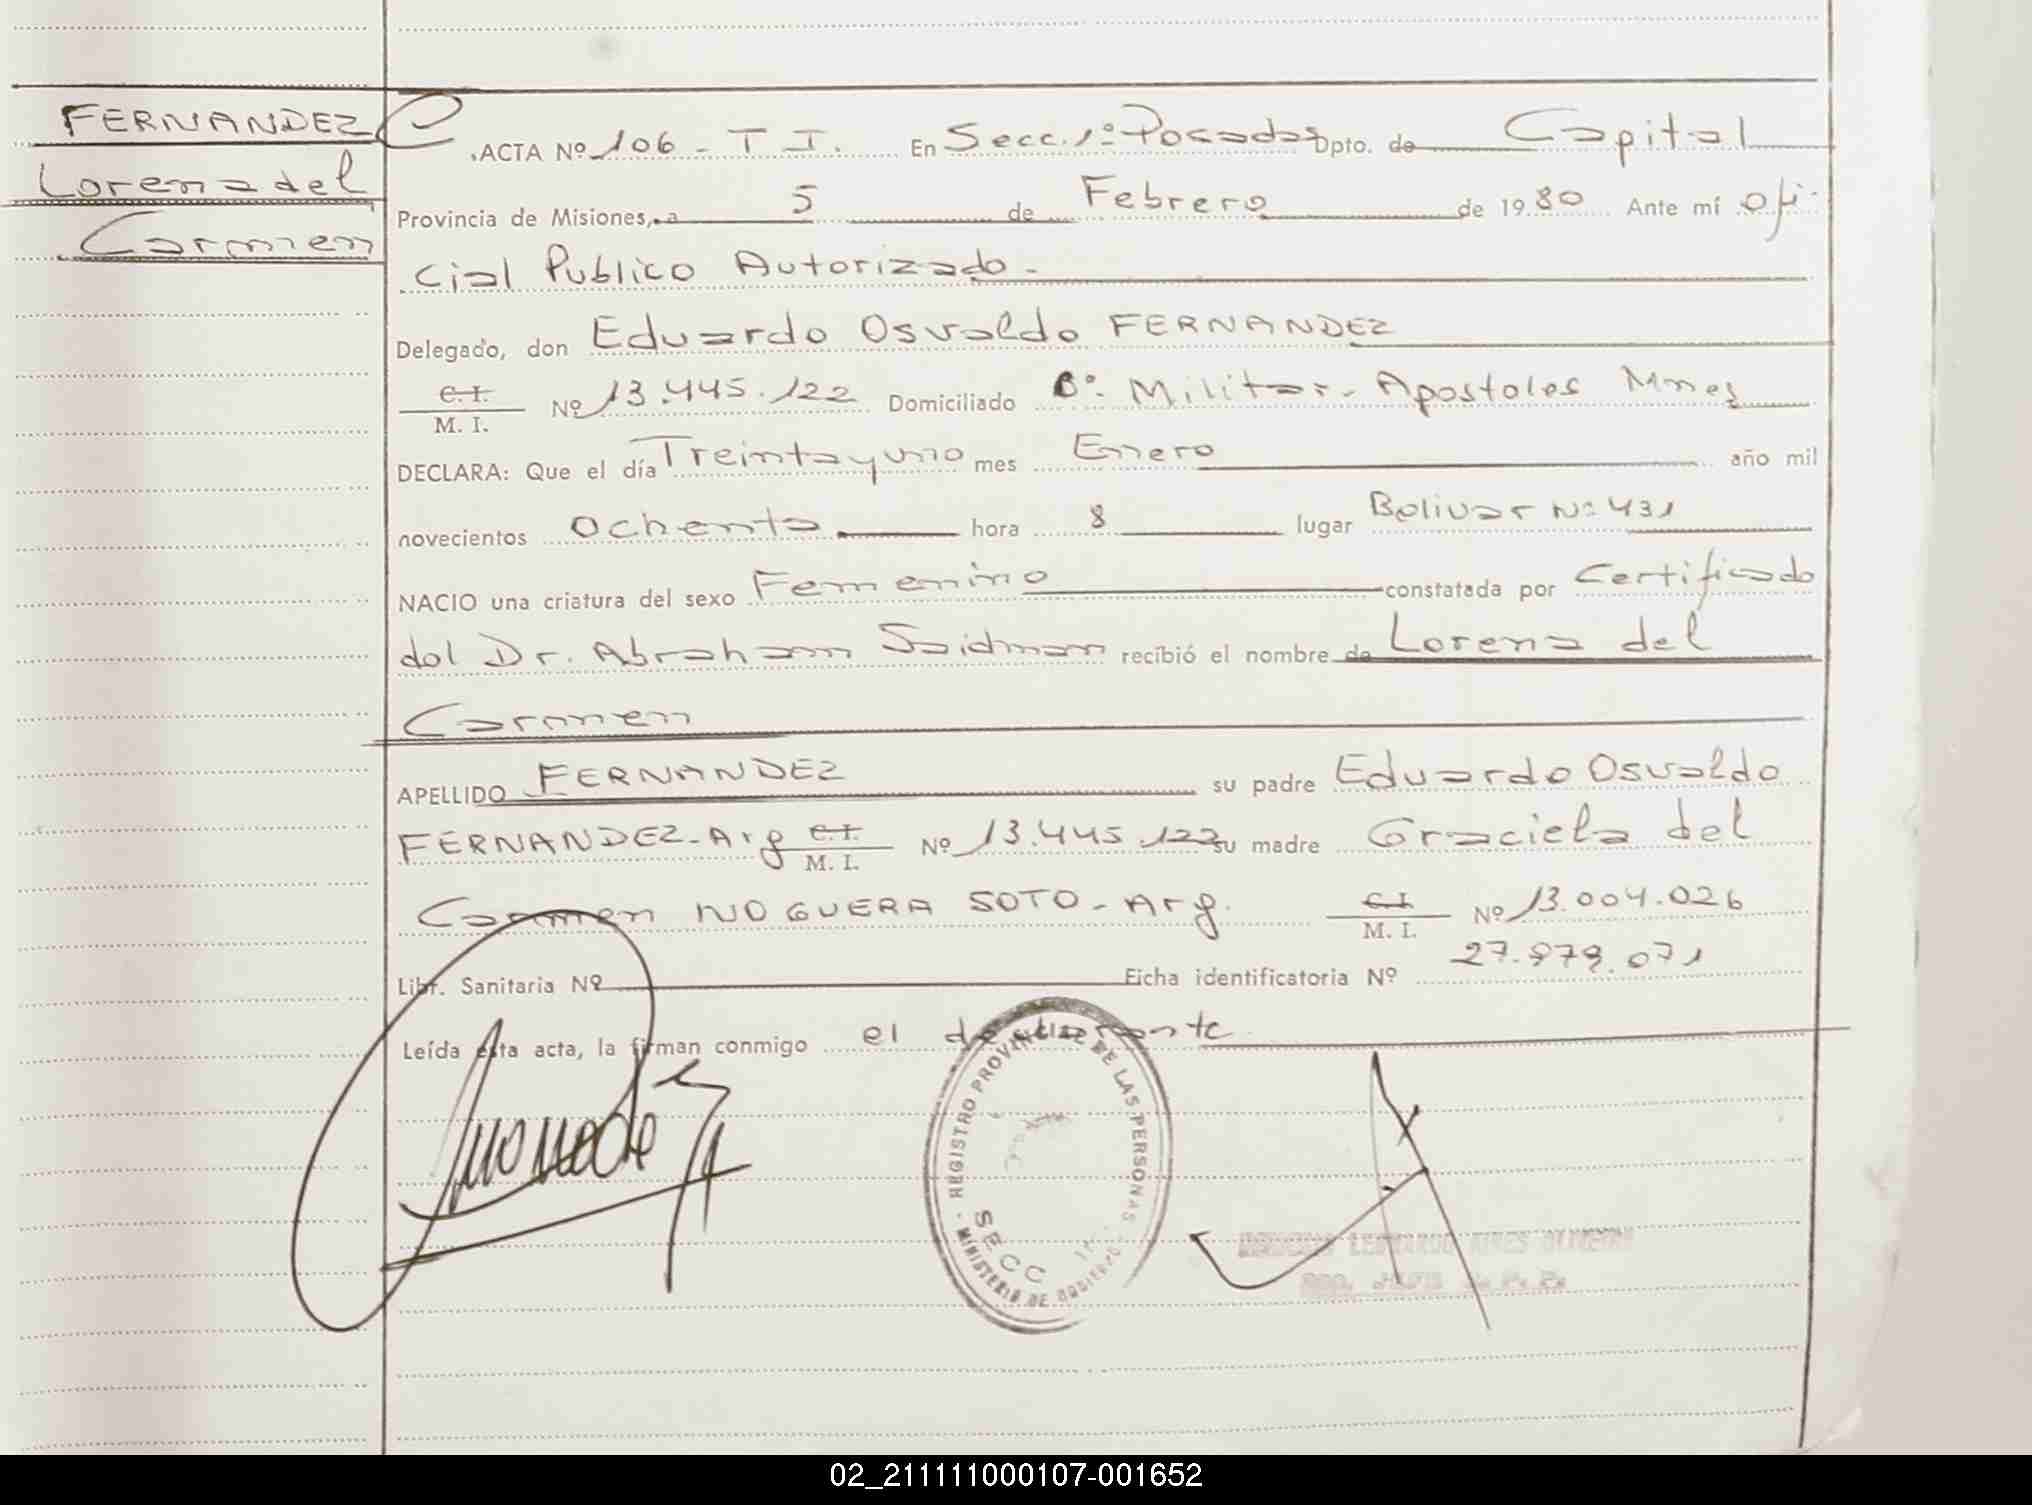 FERNANDEZ
Lorena del
Carmen
ACTA Nº 106 - T I. En Secc. 1º Posadas Dpto. de Capital
Provincia de Misiones, a 5 de Febrero de 1980 Ante mí ofi-
cial Publico Autorizado.-
Delegado, don Eduardo Osvaldo FERNANDEZ
C.I.
M. I. Nº 13.445.122 Domiciliado Bº. Militar. Apostoles Mnes
DECLARA: Que el día Treintayuno mes Enero año mil
novecientos ochenta hora 8 lugar Bolivar Nº 431
NACIO una criatura del sexo Femenino constatada por Certificado
del Dr. Abraham Saidman recibió el nombre de Lorena del
Carmen
APELLIDO FERNANDEZ su padre Eduardo Osvaldo
FERNANDEZ-Arg C.I.
M. I. Nº 13.445.122 su madre Graciela del
Carmen NOGUERA SOTO-Arg. C.I.
M. I. Nº 13.004.026
Libr. Sanitaria Nº Ficha identificatoria Nº 27.979.071
Leída esta acta, la firman conmigo el declarante
REGISTRO PROVINCIAL DE LAS PERSONAS
SECC
MINISTERIO DE GOBIERNO
02_211111000107-001652